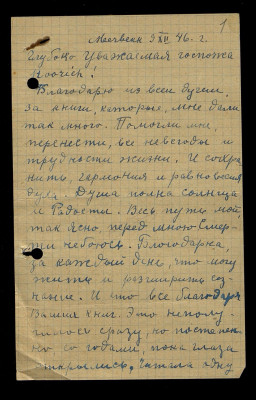 1
9 XII 46. г.
Глубоко Уважаемая госпожа
Roerich!
Благодарю из всей души,
за книги, которые, мне дали
так много. Помогли мне,
перенести, все невзгоды и
трудности жизни. И сохра
нить, гармония и равновесия
духа. Душа полна солнца
и Радости. Весь путь мой,
так ясно, перед мною Смер-
ти небоюсь. Благодарна,
за каждый день, что могу
жить и расширить соз-
чание. И что все благодаря
Вашим книг. Это неполу
чилось сразу, но постепен-
но со годами, пока глаза
открылись, Читала одну